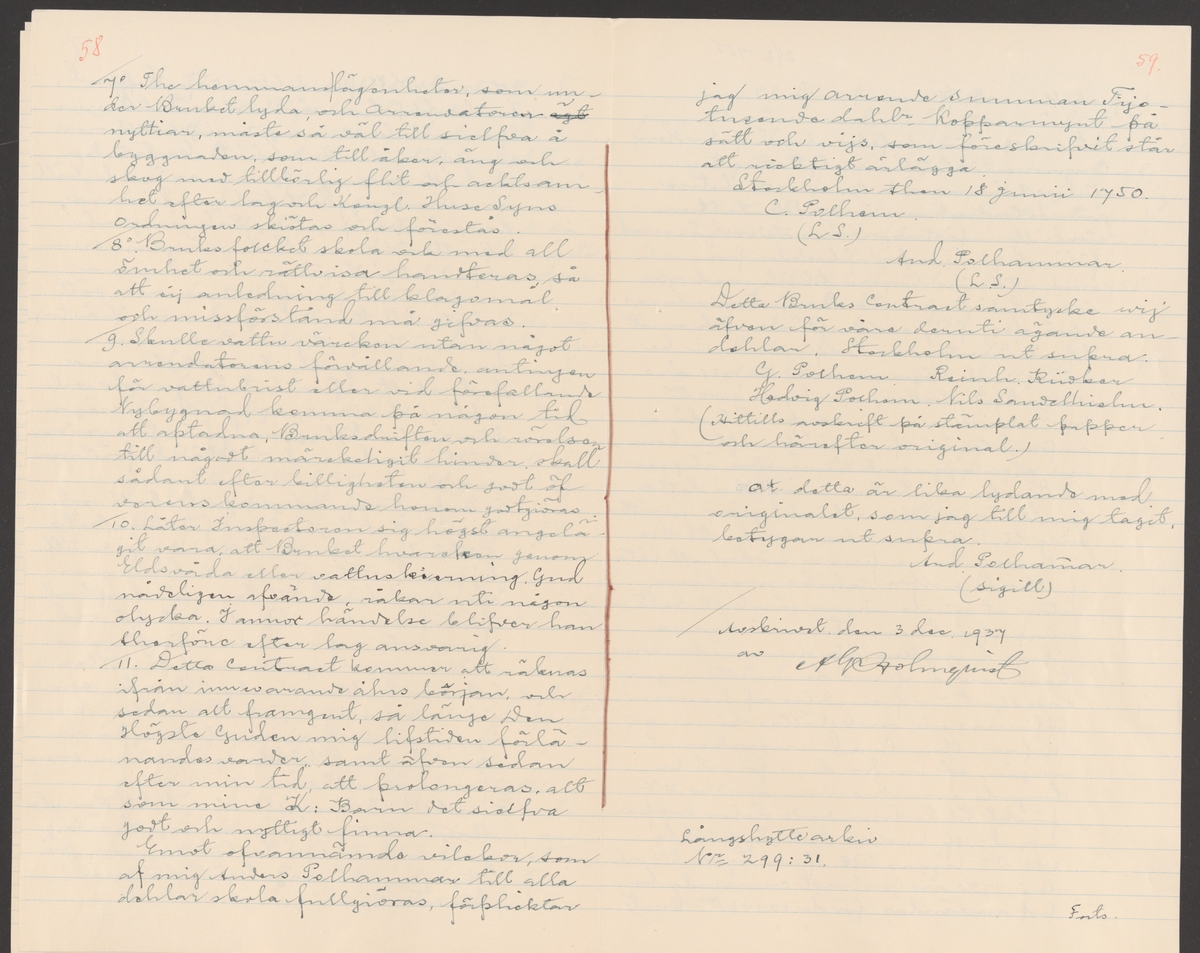 58
7o The hemmans lägenheter, som un-
der Bruket lyda, och Arrendatoren ägt
nyttiar, måste så väl till sielfva å
byggnaden, som till åker, äng och
skog med tillbörlig flit och achtsam-
het efter lag och Kongl. Huse Syns
Ordningen skiötas och förestås.
8o. Bruksfolcket skola ock med all
ömhet och rättvisa handteras, så
att eij anledning till klagomål
och missförstånd må gifvas.
9. Skulle vattu värcken utan något
arrendatorens förvållande, antingen
för vattubrist eller vid förefallande
Nybygnad komma på någon tid
att afstadna, Bruksdriften och rörelsen
till någodt märckeligit hinder, skall
sådant efter billigheten och godt öf-
verens kommande honom godtgiöras.
10. Låter Inspectoren sig högst angelä-
git vara, att Bruket hvarcken genom
Eldsvåda eller vattuskiärning, Gud
nådeligen afvände, råkar uti någon
olycka. I annor händelse blifver han
therföre efter lag ansvarig.
11. Detta Contract kommer att räknas
ifrån innevarande åhrs början, och
sedan alt framgent, så länge Den
Högste Guden mig lifstiden förlä-
nandes varder, samt äfven sedan
efter min tid, att prolongeras, alt
som mine K: Barn det sielfva
godt och nyttigt finna.
Emot ofvannämde vilckor, som
af mig Anders Polhammar till alla
dehlar skola fullgiöras, förplicktar
59.
jag mig arrende Summan Fijo-
tusende dahlr Kopparmynt på
sätt och vijs, som föreskrifvit står
att ricktigt ärlägga.
Stockholm then 18 junii 1750.
C. Polhem.
(L.S.)
And. Polhammar.
(L.S.)
Detta Bruks Contract samtycke wij
äfven för våre deruti ägande an-
dehlar. Stockholm ut supra.
G. Polhem Reinh. Rücker
Hedvig Polhem. Nils Sandelhielm.
(Hittills avskrift på stämplat papper
och härefter original.)
at detta är lika lydande med
originalet, som jag till mig tagit,
betygar ut supra.
And. Polham̄ar.
(Sigill)
Avskrivet den 3 dec. 1937
av Holmquist
Långshytte arkiv
Nr 299:31.
Forts.